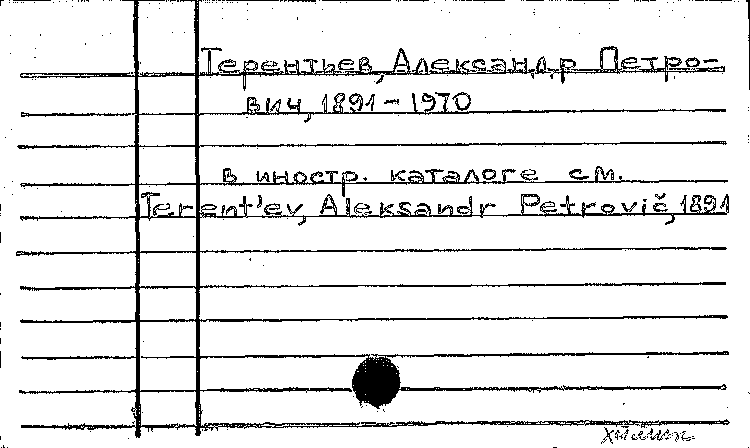 Терентьев, Александр Петро-
вич, 1891 - 1970
в иностр. каталоге см.
Terent'ev, Aleksandr Petrovič, 1891